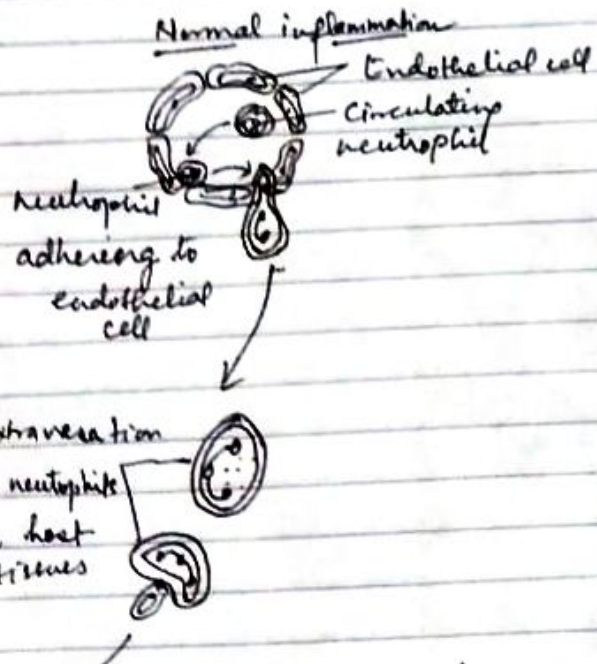 Normal inflammation
Endothelial cell
Circulating
neutrophil
Neutrophil
adhering to
endothelial
cell
xtravasation
neutrophils
host
tissues